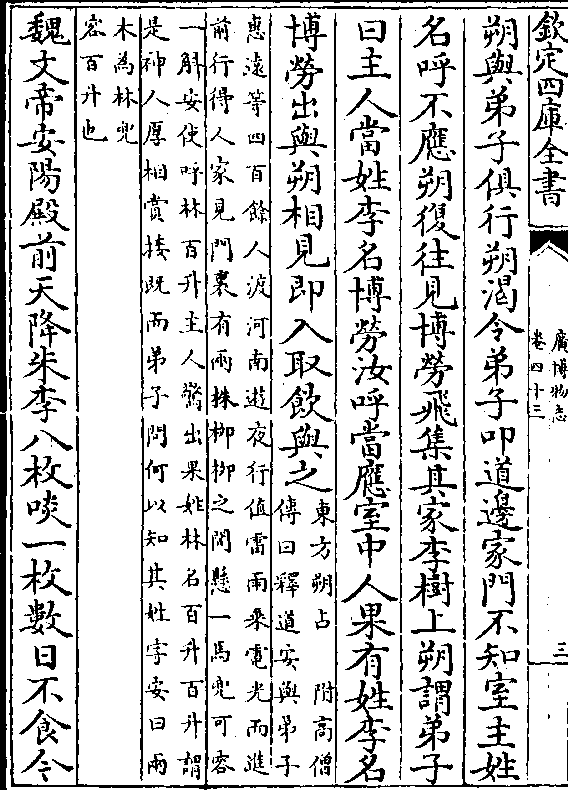 欽定四庫全書
廣博物志
卷四十三
三
朔與弟子俱行朔渴令弟子叩道邊家門不知室主姓
名呼不應朔復往見博勞飛集其家李樹上朔謂弟子
曰主人當姓李名博勞汝呼當應室中人果有姓李名
博勞出與朔相見即入取飲與之
東方朔占　附高僧
傳曰釋道安與弟子
惠遠等四百餘人渡河南遊夜行值雷雨乗電光而進
前行得人家見門裏有兩株栁栁之間懸一馬兠可容
一斛安使呼林百升主人驚出果姓林名百升百升謂
是神人厚相賞接既而弟子問何以知其姓字安曰兩
木為林兠
容百升也
魏文帝安陽殿前天降朱李八枚啖一枚數日不食今